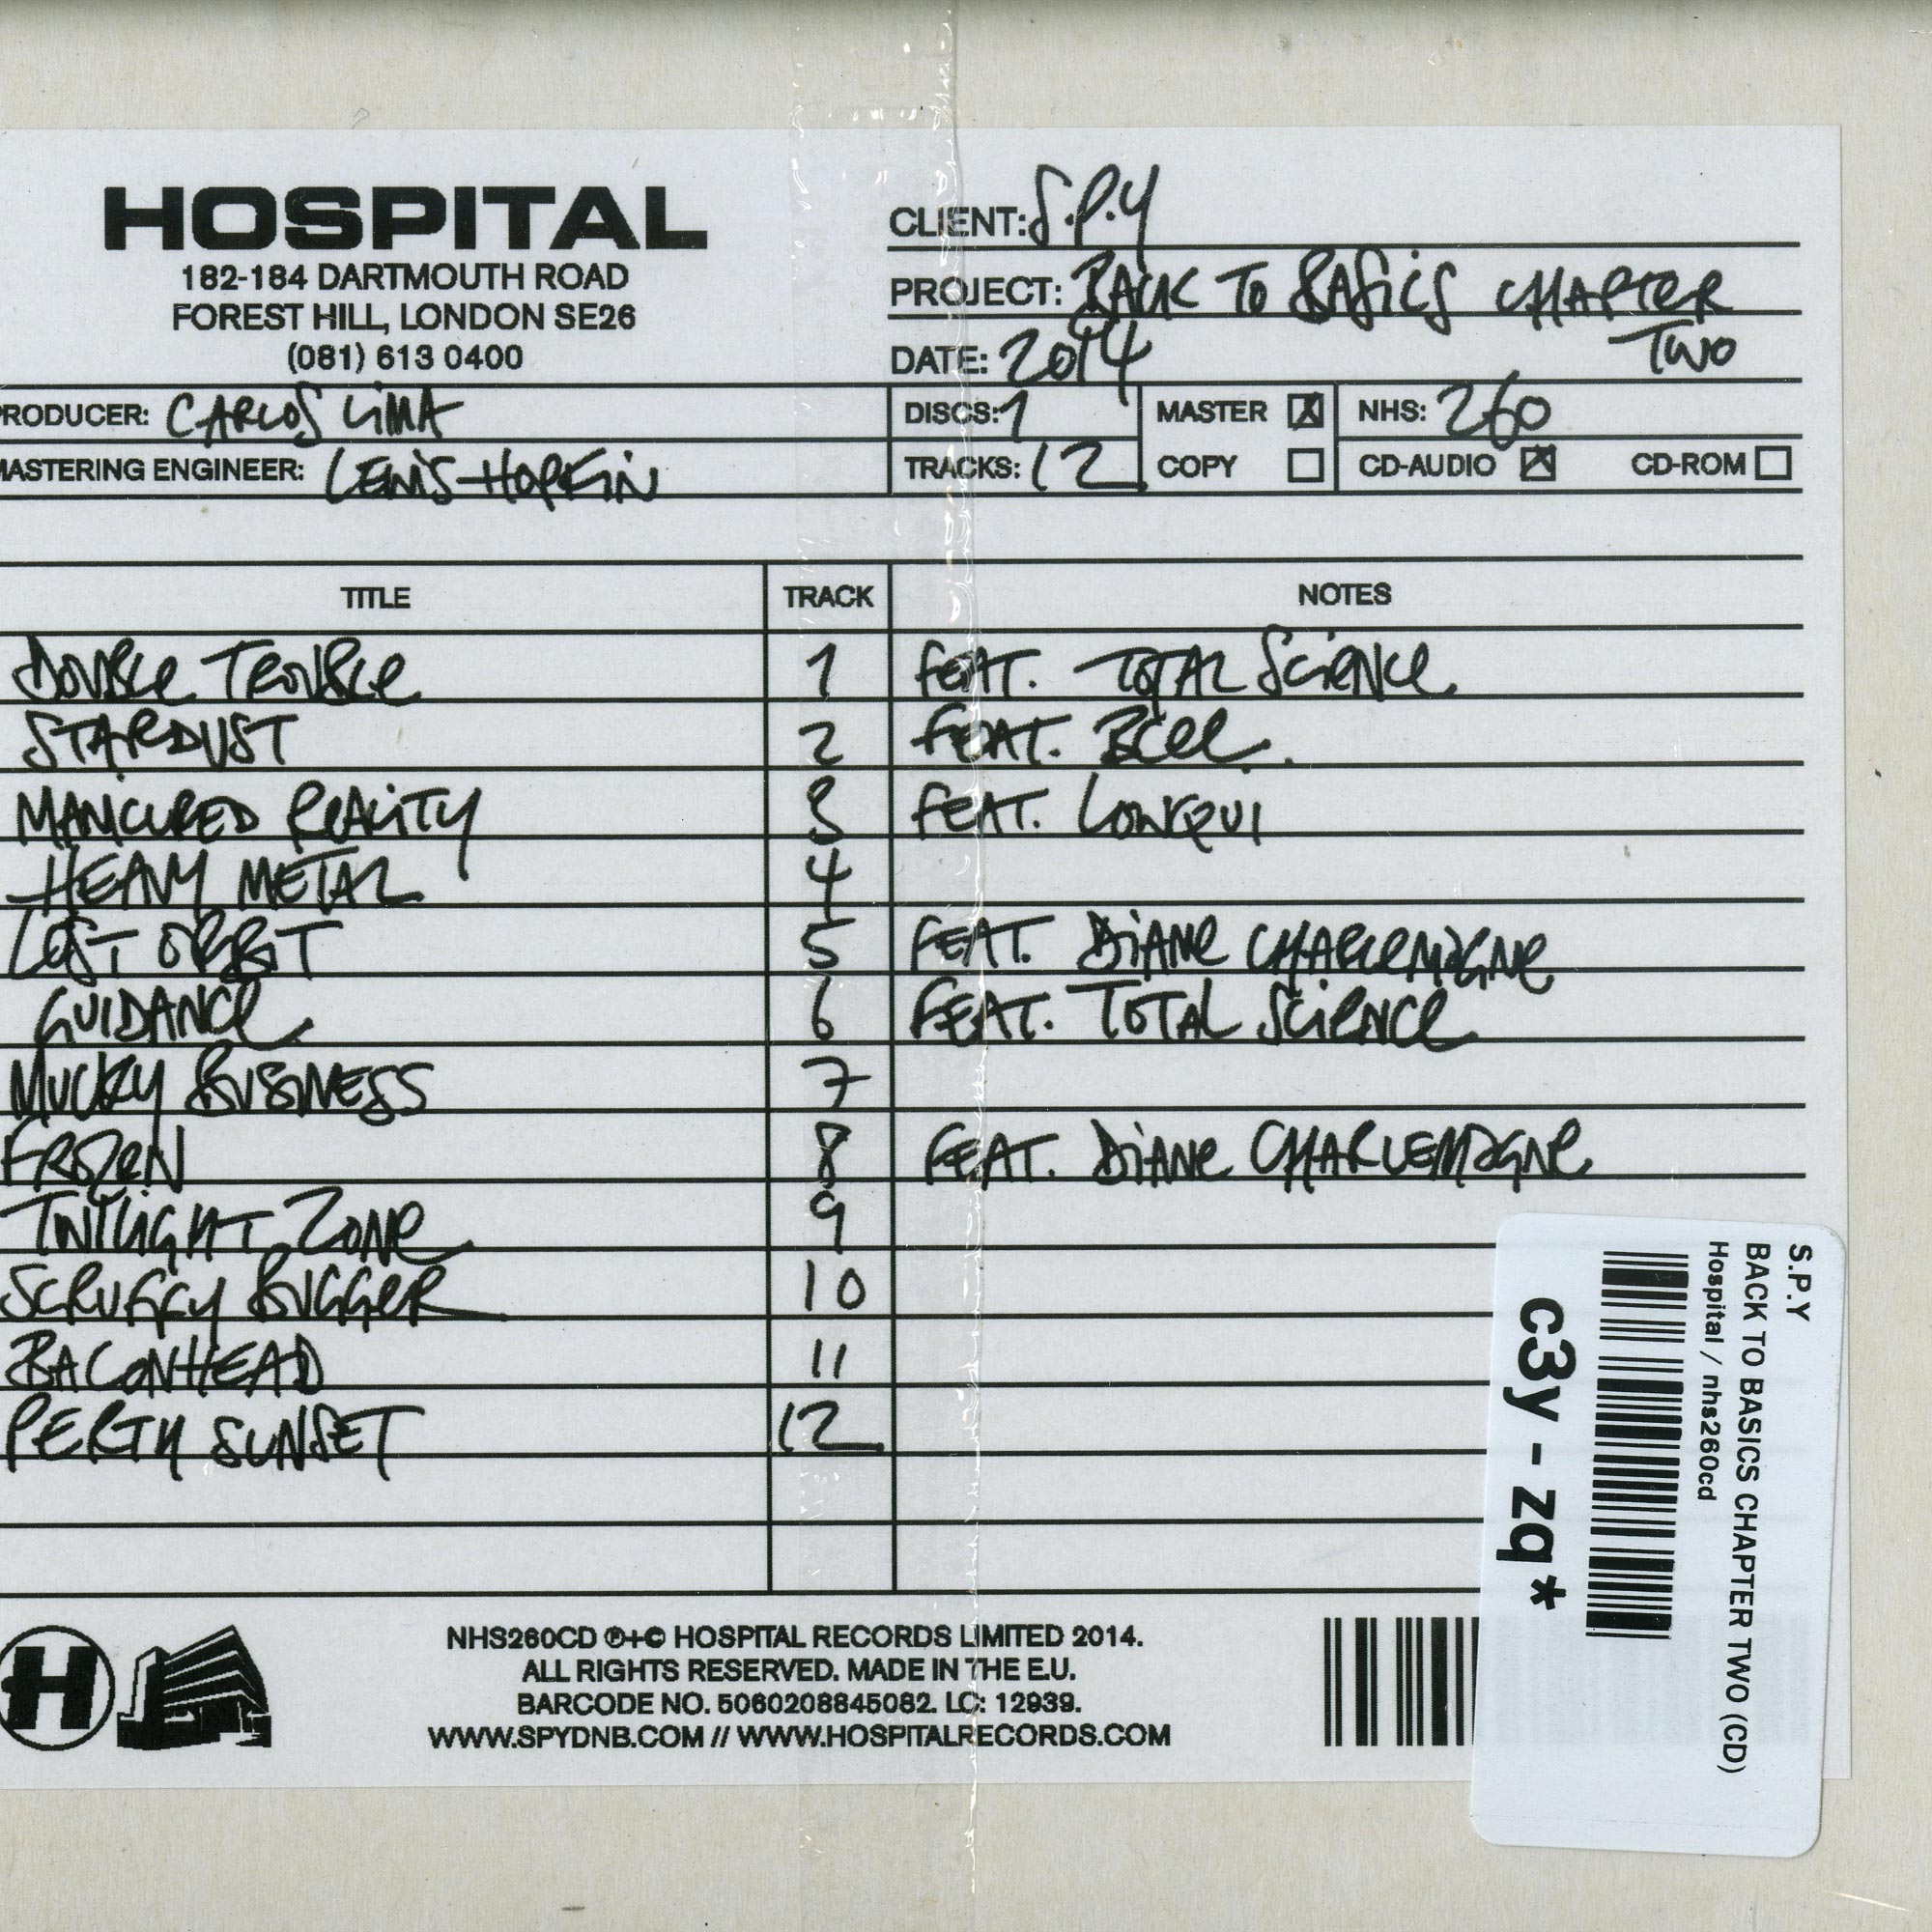 HOSPITAL
182-184 DARTMOUTH ROAD
FOREST HILL, LONDON SE26
(081) 613 0400
CLIENT: S.P.Y
PROJECT: BACK TO BASICS CHAPTER
TWO
DATE: 2014
PRODUCER: CARLOS LIMA
DISCS: 1
MASTER
NHS: 260
MASTERING ENGINEER: LEWIS HOPKIN
TRACKS: 12
COPY
CD-AUDIO
CD-ROM
TITLE TRACK NOTES
DOUBLE TROUBLE 1 FEAT. TOTAL SCIENCE
STARDUST 2 FEAT. BCEE
MANICURED REALITY 3 FEAT. LOWQUI
HEAVY METAL 4
LOST ORBIT 5 FEAT. DIANE CHARLEMAGNE
GUIDANCE 6 FEAT. TOTAL SCIENCE
MUCKY BUSINESS 7
FROZEN 8 FEAT. DIANE CHARLEMAGNE
TWILIGHT ZONE 9
SCRUFFY BUGGER 10
BACONHEAD 11
PERTH SUNSET 12
H
NHS260CD ℗+© HOSPITAL RECORDS LIMITED 2014.
ALL RIGHTS RESERVED. MADE IN THE E.U.
BARCODE NO. 5060208845082. LC: 12939.
WWW.SPYDNB.COM // WWW.HOSPITALRECORDS.COM
S.P.Y
BACK TO BASICS CHAPTER TWO (CD)
Hospital / nhs260cd
c3y - zq*